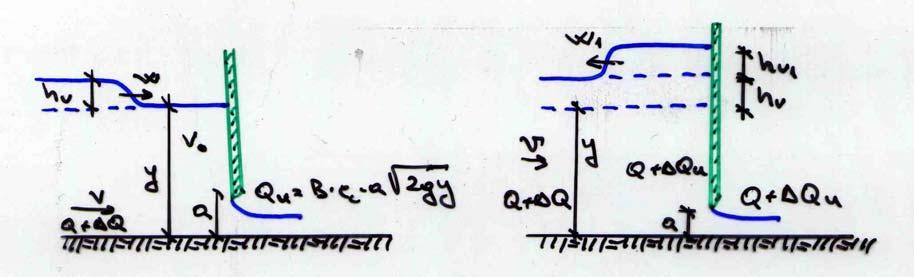 hv
w
v₀
y
Qu = B·c·a√2gy
a
v
Q+ΔQ
w₁
hv₁
hv
v
y
Q+ΔQu
Q+ΔQ
Q+ΔQu
a